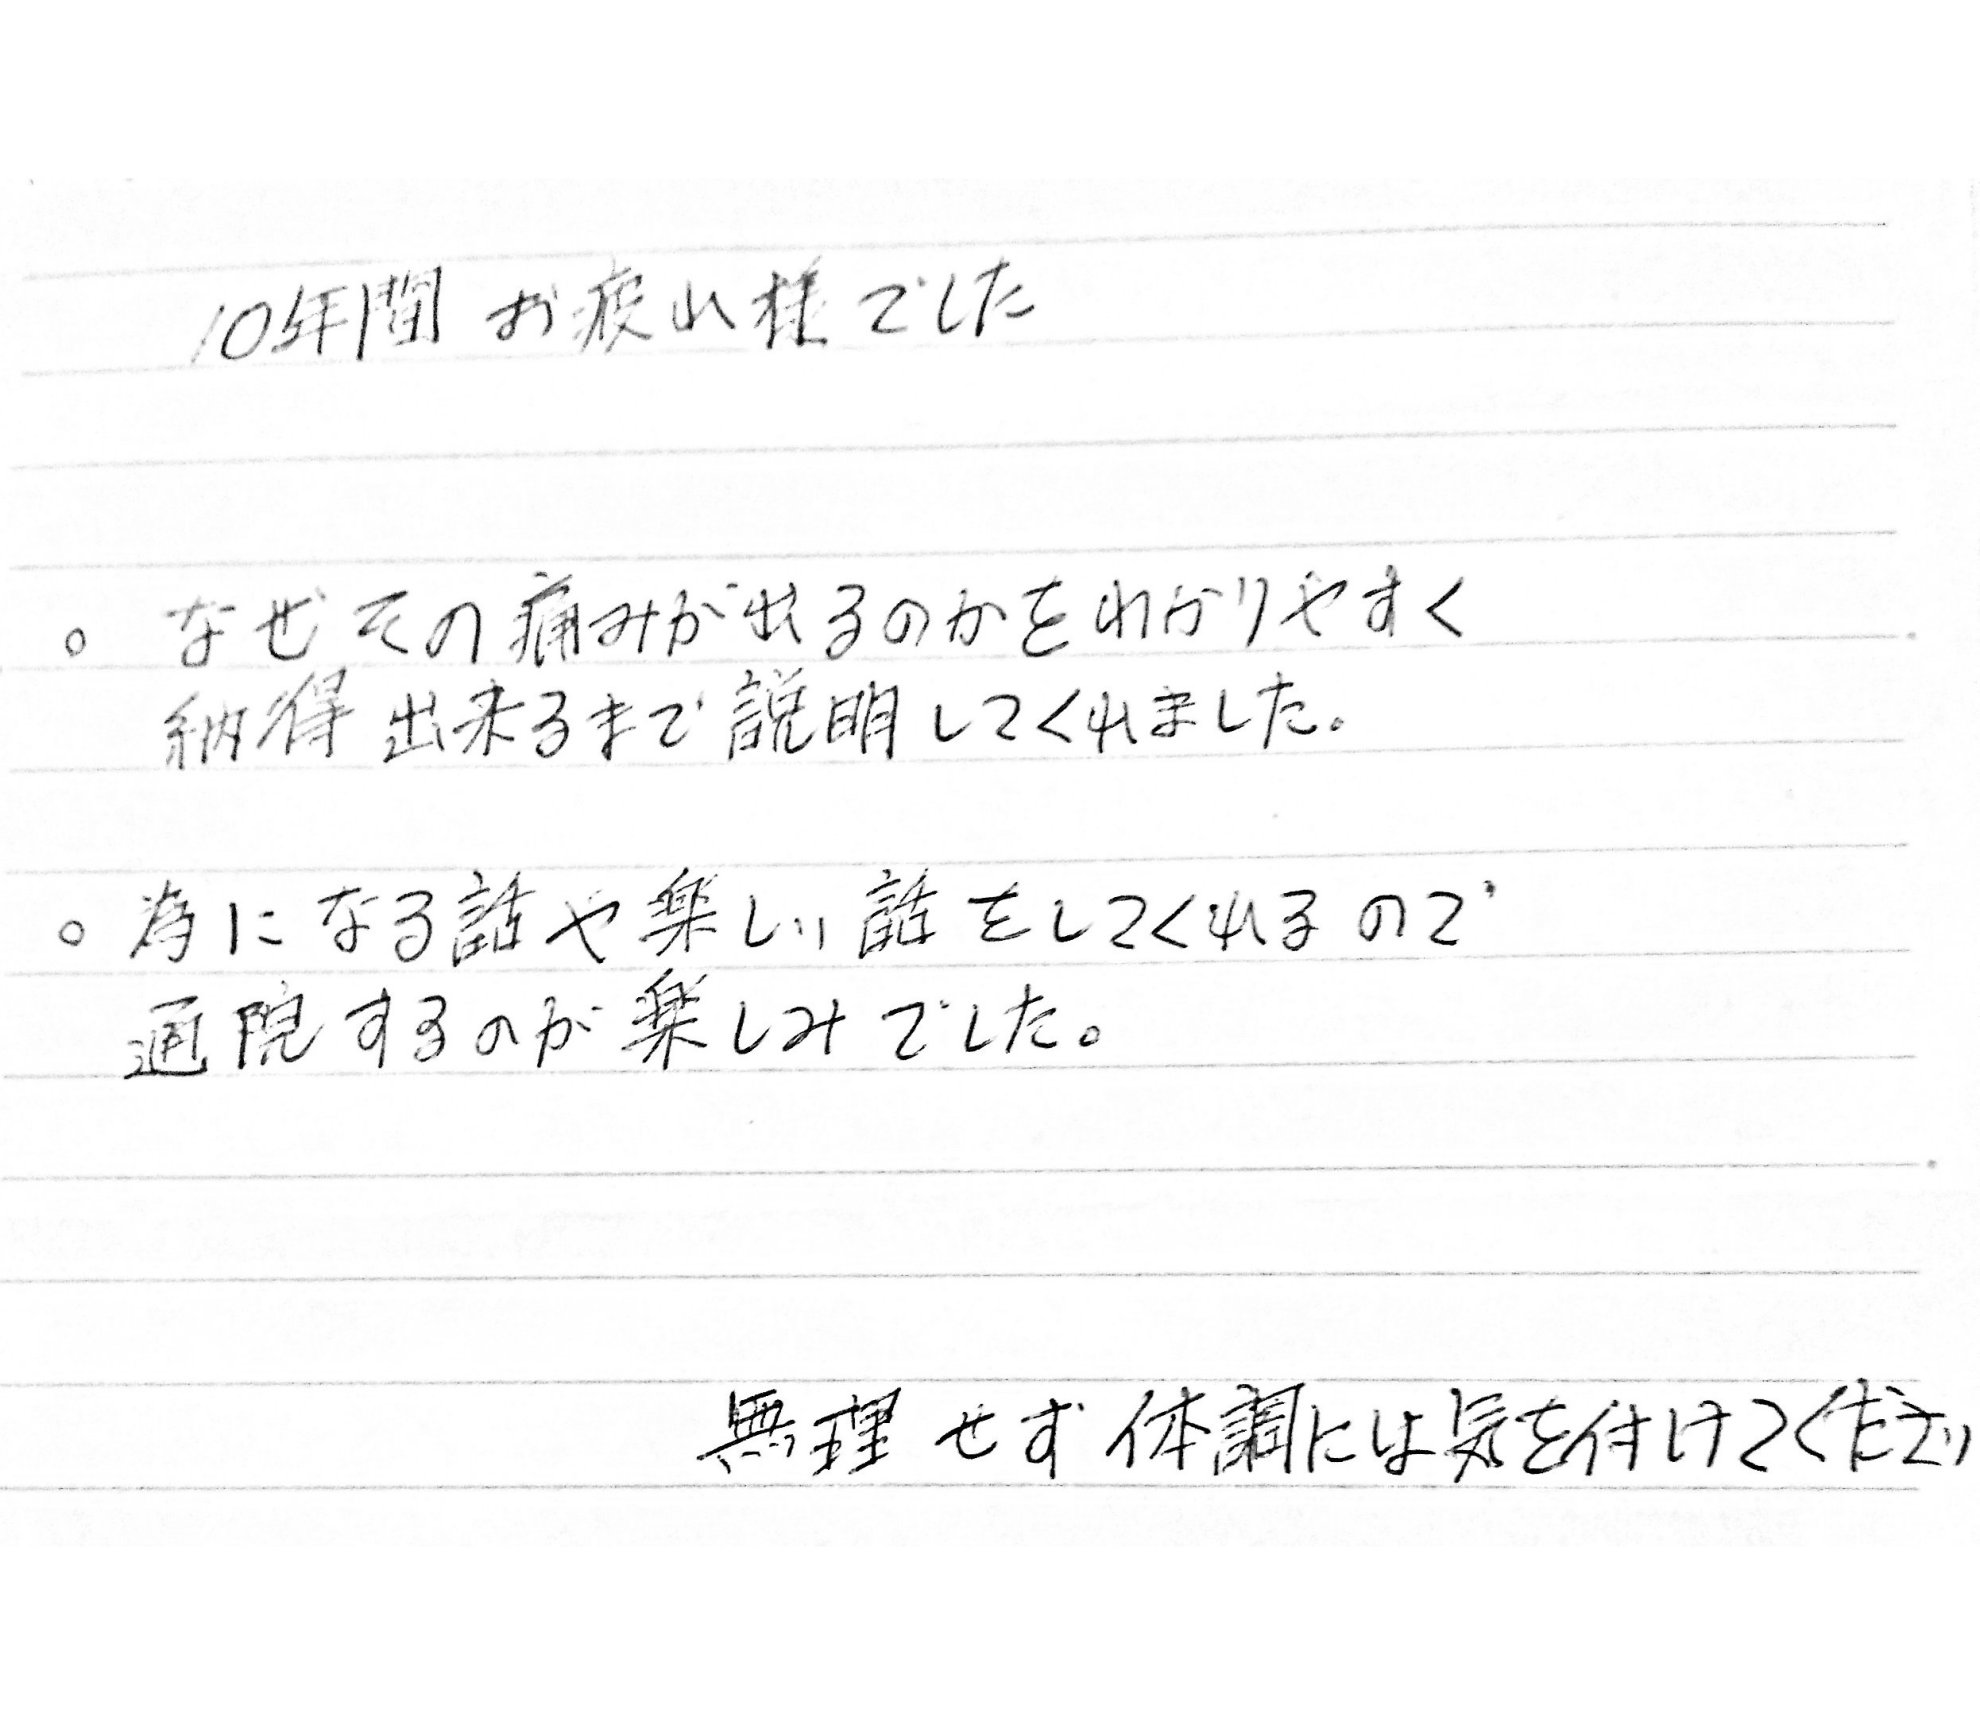 10年間 お疲れ様でした
。なぜその痛みが出るのかをわかりやすく
納得出来るまで説明してくれました。
。為になる話や楽しい話をしてくれるので
通院するのが楽しみでした。
無理せず体調には気を付けてください